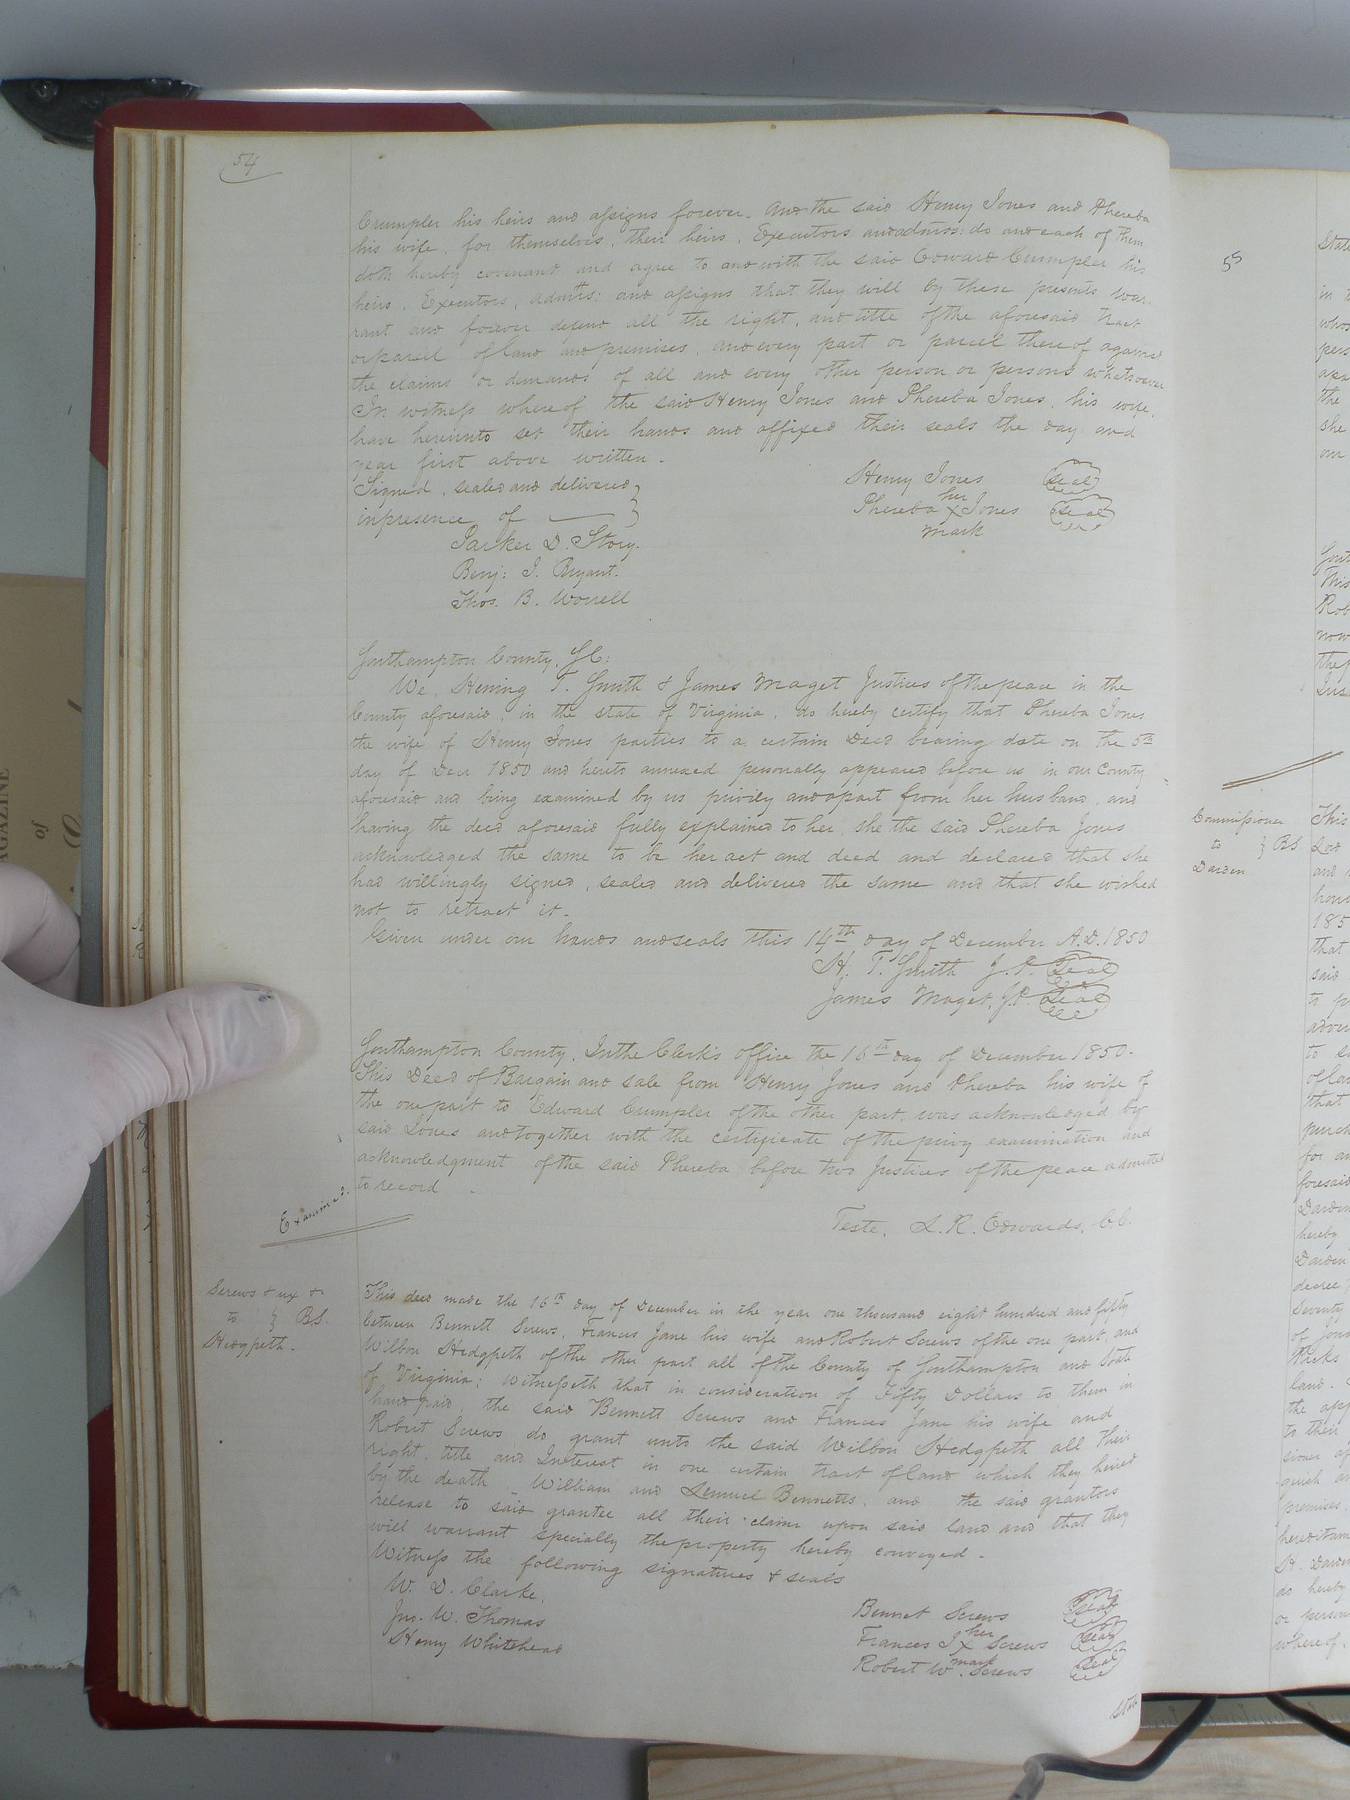 54
Crumpler his heirs and assigns forever. And the said Henry Jones and Phereba
his wife, for themselves, their heirs, Executors and admors: do and each of them
doth hereby covenant and agree to and with the said Edward Crumpler his
heirs, Executors, admrs: and assigns that they will by these presents war-
rant and forever defend all the right, and title of the aforesaid tract
or parcel of land and premises, and every part or parcel thereof against
the claims or demands of all and every other person or persons whatsoever
In witness whereof the said Henry Jones and Phereba Jones, his wife,
have hereunto set their hands and affixed their seals the day and
year first above written.
Signed, sealed and delivered }
in presence of
Henry Jones (seal)
her
Phereba X Jones (seal)
mark
Parker D. Story.
Benj: J. Bryant.
Thos. B. Worrell
Southampton County, SC:
We, Hening T. Smith & James Maget Justices of the peace in the
County aforesaid, in the state of Virginia, do hereby certify that Phereba Jones
the wife of Henry Jones parties to a certain Deed bearing date on the 5th
day of Decr 1850 and hereto annexed personally appeared before us in our County
aforesaid and being examined by us privily and apart from her husband, and
having the deed aforesaid fully explained to her, she the said Phereba Jones
acknowledged the same to be her act and deed and declared that she
had willingly signed, sealed and delivered the same and that she wished
not to retract it.
Given under our hands and seals this 14th day of December A.D. 1850
H. T. Smith J.P. (Seal)
James Maget, J.P. (Seal)
Southampton County, In the Clerk's office the 16th day of December 1850.
This Deed of Bargain and sale from Henry Jones and Phereba his wife of
the one part to Edward Crumpler of the other part, was acknowledged by
said Jones and together with the certificate of the privy examination and
acknowledgment of the said Phereba before two Justices of the peace admitted
to record.
Examined.
Teste, L. R. Edwards, C.C.
Screws & ux &
to } BS.
Hedgpeth.
This deed made the 16th day of December in the year one thousand eight hundred and fifty
between Bennett Screws, Frances Jane his wife and Robert Screws of the one part, and
Wilbon Hedgpeth of the other part all of the County of Southampton and State
of Virginia; Witnesseth that in consideration of Fifty Dollars to them in
hand paid, the said Bennett Screws and Frances Jane his wife and
Robert Screws do grant unto the said Wilbon Hedgpeth all their
right, title and Interest in one certain tract of land which they heired
by the death William and Lemuel Bennetts, and the said grantors
release to said grantee all their claim upon said land and that they
will warrant specially the property hereby conveyed.
Witness the following signatures & seals
W. D. Clarke.
Jno. W. Thomas
Henry Whitehead
Bennet Screws (seal)
her
Frances J X Screws (seal)
mark
Robert W. Screws (seal)
State
55
Commissioner
to } BS
Darden
State
This
185
that
said
that
Darden
hereby
Darden
decree
Seventy
land.
the app
to their
premises,
do hereby
or person
whereof,
MAGAZINE
of